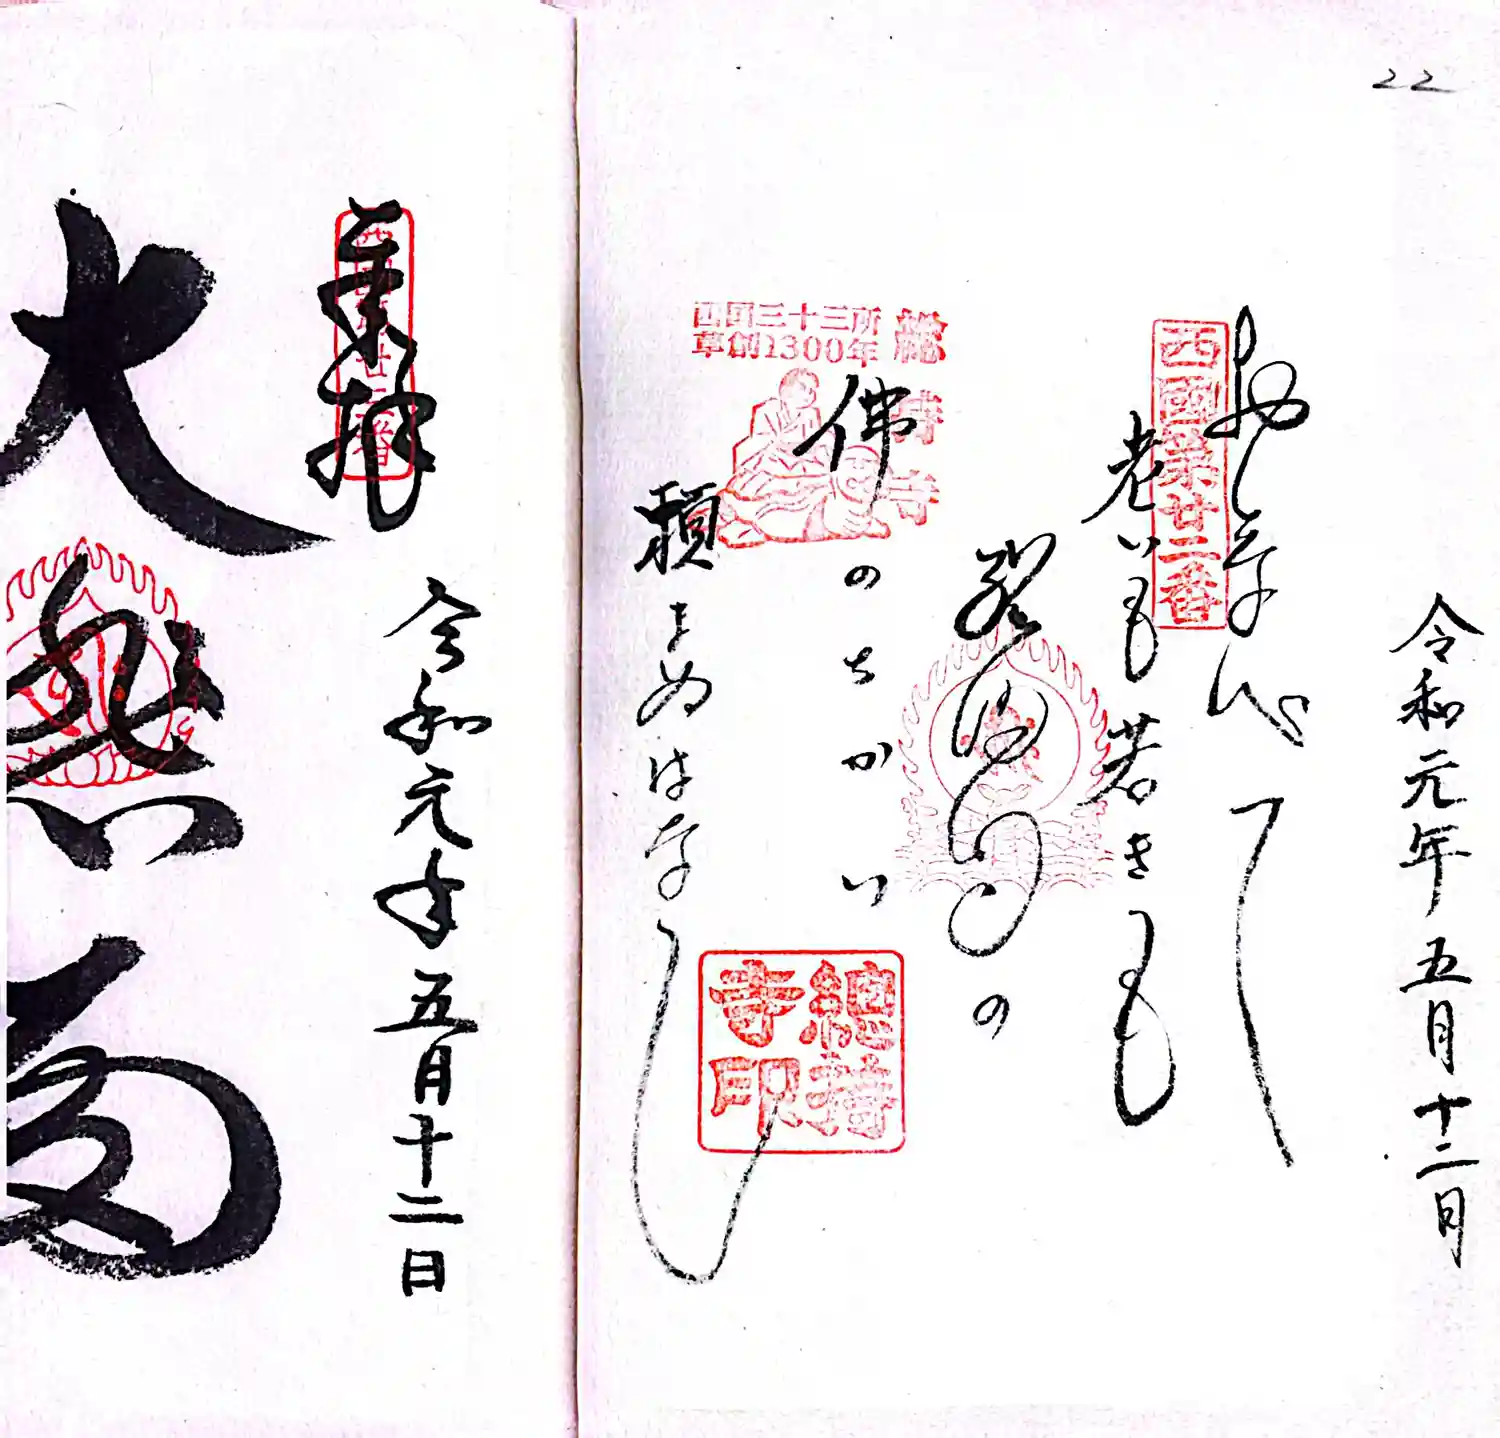 22
令和元年五月十二日
西國第廿二番
おしなべて
老いも若きも
総持寺の
佛のちかい
頼まぬはなし
総持寺
西国三十三所
草創1300年
總持寺印
奉拝
西國第廿二番
令和元年五月十二日
大悲